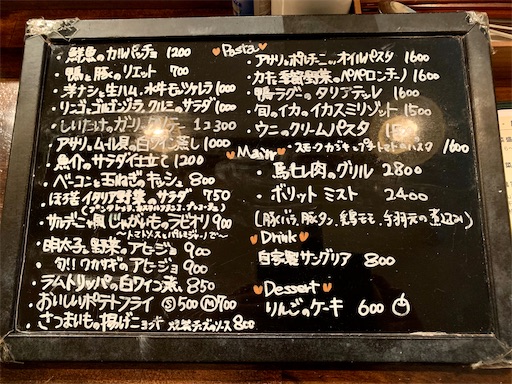 ・鮮魚のカルパッチョ 1200
・鴨と豚のリエット 700
・洋ナシと生ハム、水牛モッツァレラ 1000
・リンゴ、ゴルゴンゾーラ、クルミのサラダ 1000
・しいたけの
・アサリ、ムール貝の白ワイン蒸し 1000
・魚介のサラダ仕立て 1200
・ベーコンと玉ねぎのキッシュ 800
・ほろ苦イタリア野菜のサラダ 750
・サルデーニャ風じゃがいものラビオリ 900
〜トマトソースとパルミジャーノで〜
・明太子と野菜のアヒージョ 900
・旬!! ワカサギのアヒージョ 900
・ラムトリッパの白ワイン煮 850
・おいしいポテトフライ Ⓢ500 Ⓜ700
・さつまいもの揚げニョッキ チーズのソース 800
Pasta
・アサリとポルチーニのオイルパスタ 1600
・カキと季節野菜のペペロンチーノ 1600
・鴨ラグーのタリアテッレ 1600
・旬のイカのイカスミリゾット 1500
・ウニのクリームパスタ
・スモークカキとプチトマトのパスタ 1600
Main
・馬モモ肉のグリル 2800
・ボリットミスト 2400
(豚バラ、豚タン、鶏モモ、手羽元の煮込み)
Drink
自家製サングリア 800
Dessert
りんごのケーキ 600